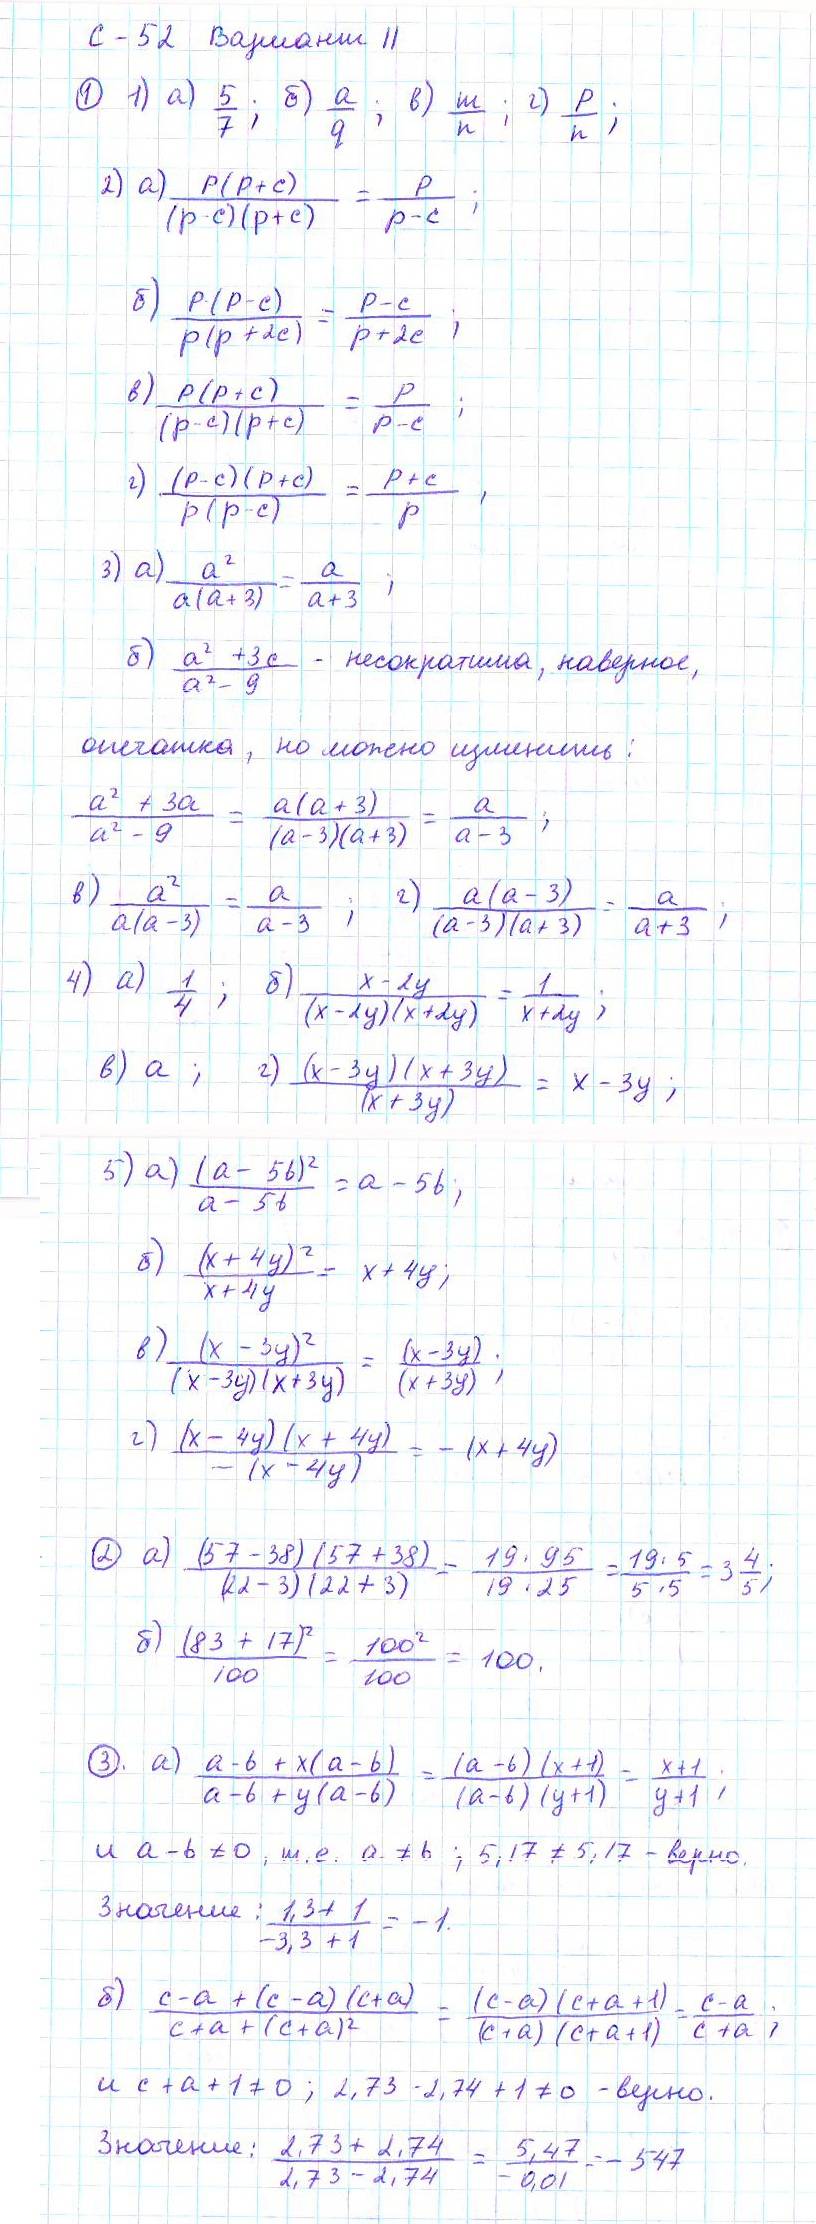 С-52 Вариант II
① 1) а) 5/7; б) a/q; в) m/n; г) p/n;
2) а) p(p+c)/(p-c)(p+c) = p/(p-c);
б) p(p-c)/p(p+2c) = (p-c)/(p+2c);
в) p(p+c)/(p-c)(p+c) = p/(p-c);
г) (p-c)(p+c)/p(p-c) = (p+c)/p,
3) а) a²/a(a+3) = a/(a+3);
б) (a²+3c)/(a²-9) - несократима, наверное,
опечатка, но можно изменить:
(a²+3a)/(a²-9) = a(a+3)/(a-3)(a+3) = a/(a-3);
в) a²/a(a-3) = a/(a-3); г) a(a-3)/(a-3)(a+3) = a/(a+3);
4) а) 1/4; б) (x-2y)/(x-2y)(x+2y) = 1/(x+2y);
в) a; г) (x-3y)(x+3y)/(x+3y) = x-3y;
5) а) (a-5b)²/(a-5b) = a-5b;
б) (x+4y)²/(x+4y) = x+4y;
в) (x-3y)²/(x-3y)(x+3y) = (x-3y)/(x+3y);
г) (x-4y)(x+4y)/-(x-4y) = -(x+4y)
② а) (57-38)(57+38)/(22-3)(22+3) = 19·95/19·25 = 19·5/5·5 = 3 4/5;
б) (83+17)²/100 = 100²/100 = 100.
③. а) (a-b+x(a-b))/(a-b+y(a-b)) = (a-b)(x+1)/(a-b)(y+1) = (x+1)/(y+1);
и a-b≠0, т.е. a≠b; 5,17≠5,17 - верно.
Значение: (1,3+1)/(-3,3+1) = -1.
б) (c-a+(c-a)(c+a))/(c+a+(c+a)²) = (c-a)(c+a+1)/(c+a)(c+a+1) = (c-a)/(c+a);
и c+a+1≠0; 2,73-2,74+1≠0 - верно.
Значение: (2,73+2,74)/(2,73-2,74) = 5,47/-0,01 = -547